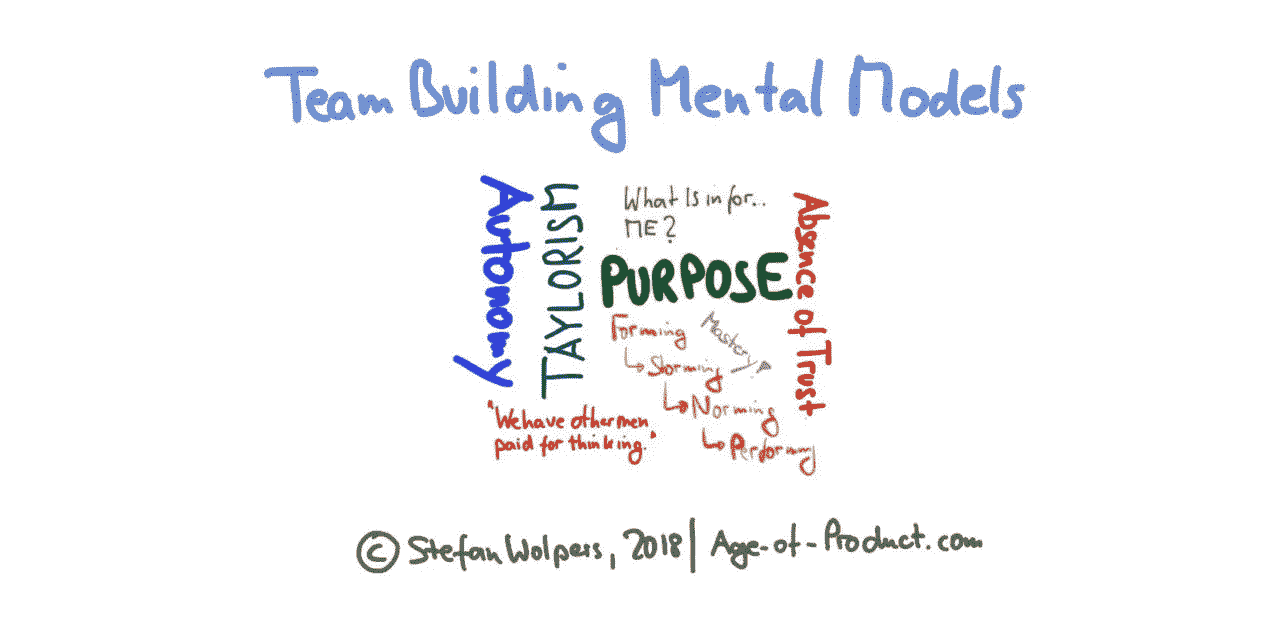 Team Building Mental Models
Autonomy
TAYLORISM
What Is in for..
ME?
PURPOSE
Absence of Trust
Forming
Mastery
Storming
Norming
Performing
"We have other men
paid for thinking."
© Stefan Wolpers, 2018 | Age-of-Product.com